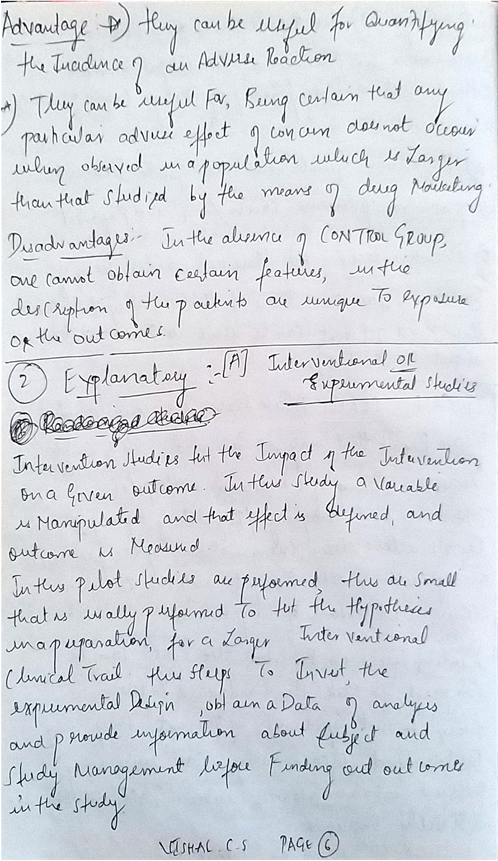 Advantage :- A) they can be useful for Quantifying
the Incidence of an Adverse Reaction
A) They can be useful For, Being certain that any
particular adverse effect of concern does not occur
when observed in a population which is Larger
than that studied by the means of drug Marketing.
Disadvantages:- In the absence of CONTROL GROUP,
one cannot obtain certain features, in the
description of the patients are unique To exposure
or the outcomes.
2 Explanatory :- [A] Interventional OR
Experimental studies
Intervention studies test the Impact of the Intervention
on a Given outcome. In this study a variable
is Manipulated and that effect is defined, and
outcome is Measured.
In this pilot studies are performed, this are small
that is usually performed To test the Hypothesis
in a preparation, for a Larger Interventional
Clinical Trail. this steps To Invest, the
experimental Design, obtain a Data of analysis
and provide information about subject and
study Management before Finding out outcomes
in the study
VISHAL. C.S PAGE 6